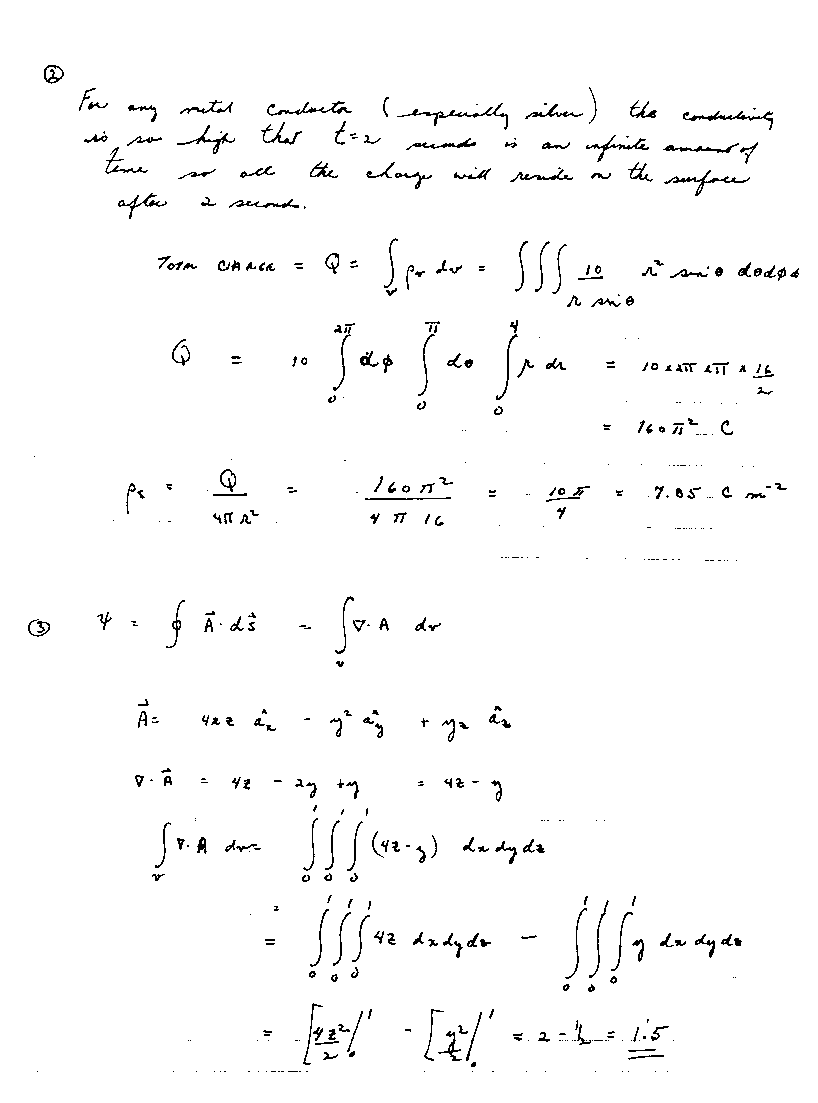 ②
For any metal conductor (especially silver) the conductivity
is so high that t=2 seconds is an infinite amount of
time so all the charge will reside on the surface
after 2 seconds.
TOTAL CHARGE = Q = ∫_v ρ_v dv = ∫∫∫ 10/(r sin θ) r² sin θ dθ dφ d
Q = 10 ∫_0^{2π} dφ ∫_0^{π} dθ ∫_0^4 r dr = 10 x 2π x π x 16/2
= 160 π² C
ρ_s = Q/(4π r²) = 160 π²/(4 π 16) = 10 π/4 = 7.85 C m⁻²
③ ψ = ∮ A⃗ · d s⃗ = ∫_v ∇ · A dv
A⃗ = 4xz â_x - y² â_y + yz â_z
∇ · A⃗ = 4z - 2y + y = 4z - y
∫_v ∇ · A dv = ∫_0^1 ∫_0^1 ∫_0^1 (4z - y) dx dy dz
= ∫_0^1 ∫_0^1 ∫_0^1 4z dx dy dz - ∫_0^1 ∫_0^1 ∫_0^1 y dx dy dz
= [4z²/2 |_0^1 - [y²/2 |_0^1 = 2 - ½ = 1.5